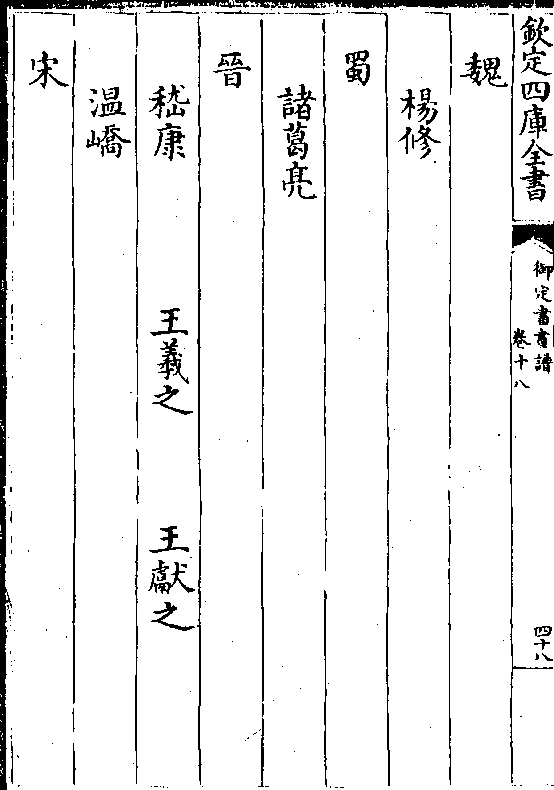 欽定四庫全書
御定書畫譜
卷十八
四十八
魏
楊修
蜀
諸葛亮
晉
嵇康 王羲之 王獻之
温嶠
宋